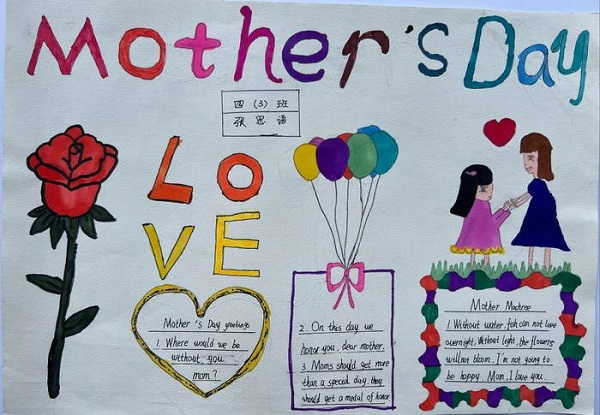 Mother's Day
四（3）班
张思语
LO
VE
Mother's Day greetings
1. Where would we be
without you
mom?
2. On this day we
honor you, dear mother.
3. Moms should get more
than a special day, they
should get a medal of honor
Mother Machree
1. Without water, fsh can not love
overnight. Without light, the flowers
will not bloom. I'm not going to
be happy. Mom, I love you.